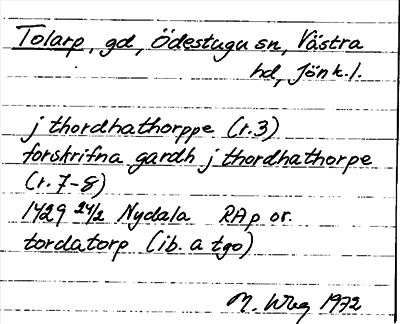 Tolarp, gd, Ödestugu sn, Västra
hd, Jönk. l.
j thordhathorppe (r. 3)
forskrifna gardh j thordhathorpe
(r. 7-8)
1429 24/2 Nydala RAp or.
tordatorp (ib. a tgo)
M. Wbg 1972